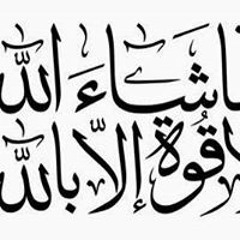 شَاءَ اللّه
قُوَّةَ إلاّ باللّه